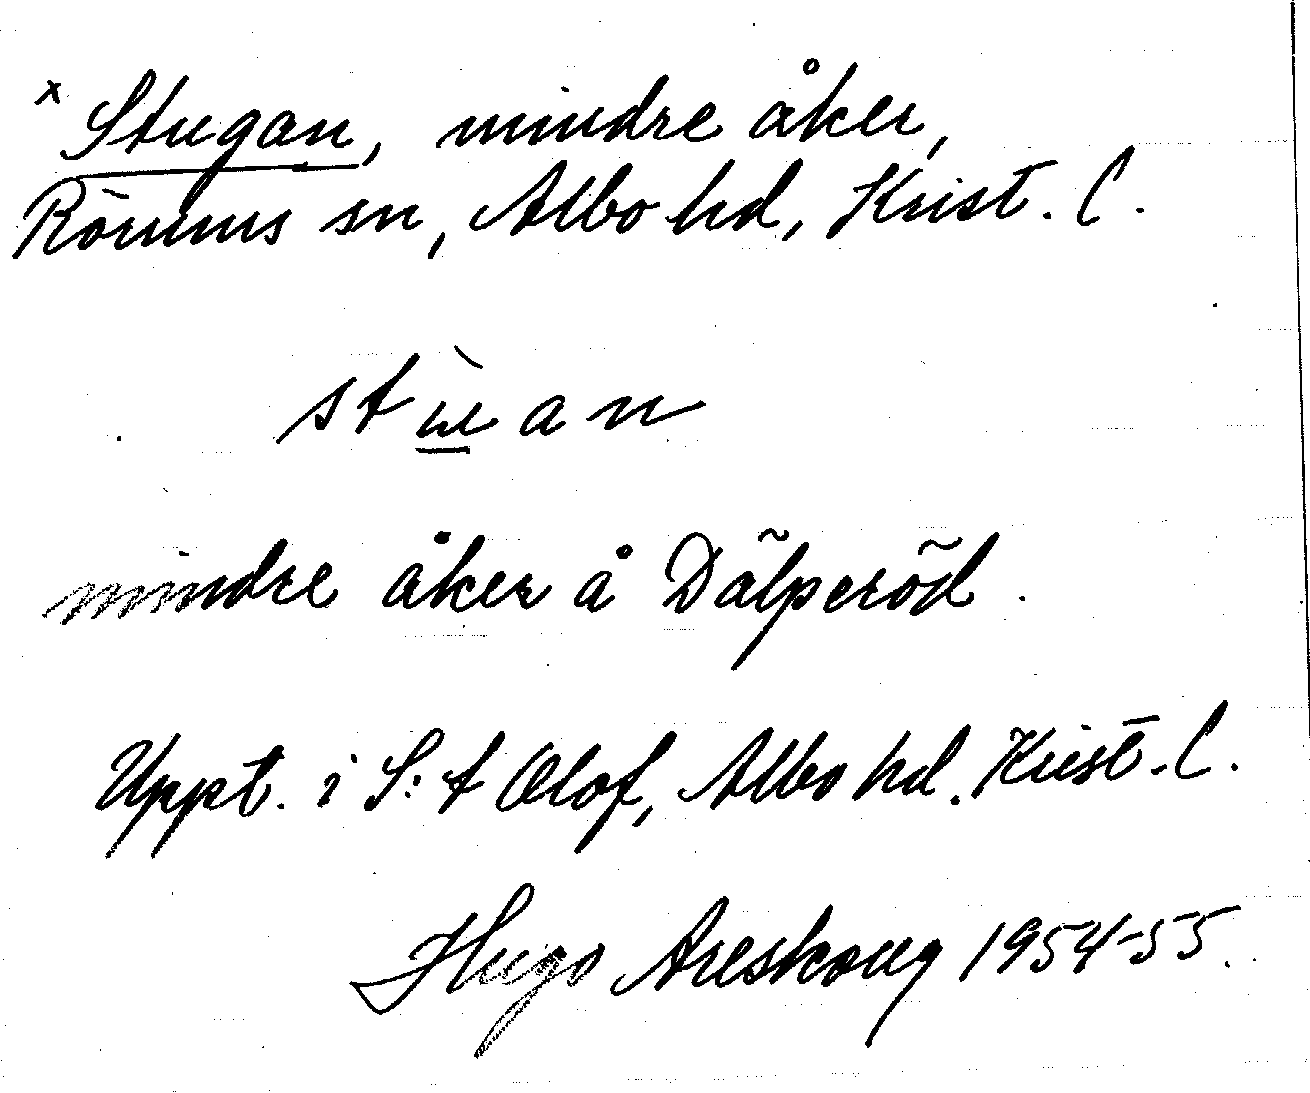 x Stugan, mindre åker,
Rörums sn, Albo hd, Krist. l.
stɯ̀an
mindre åker å Dälperöd.
Uppt. i S:t Olof, Albo hd. Krist. l.
Hugo Areskoug 1954-55.